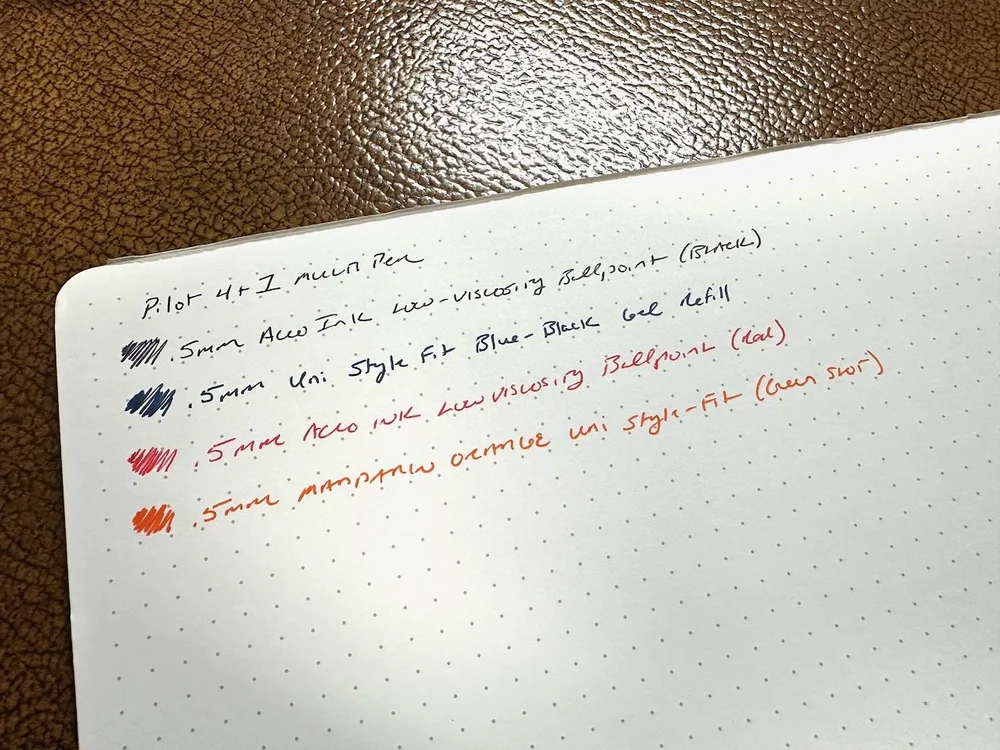 Pilot 4+1 Multi Pen
.5mm Acro Ink Low-Viscosity Ballpoint (Black)
.5mm Uni Style Fit Blue-Black Gel Refill
.5mm Acro Ink Low Viscosity Ballpoint (Red)
.5mm Mandarin Orange Uni Style-Fit (Green Slot)